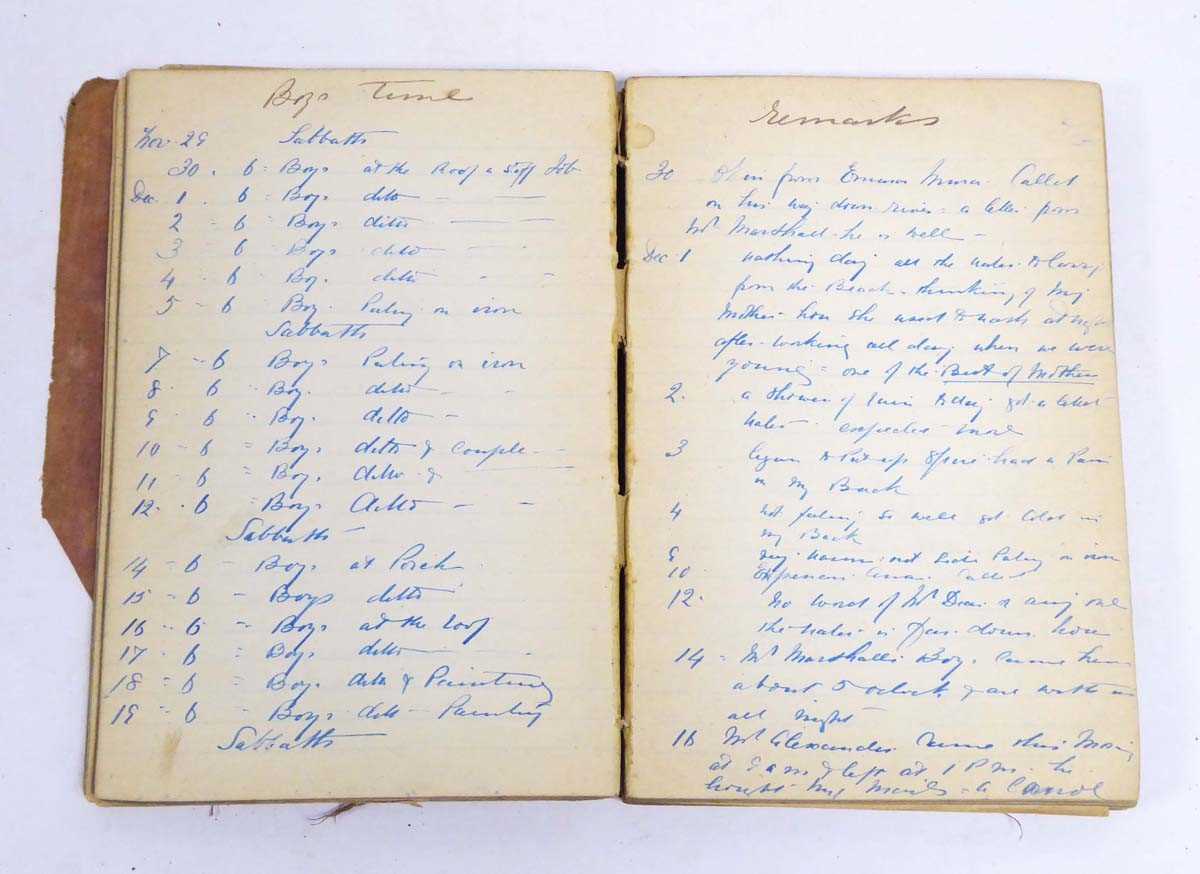 Boys Time
Nov. 29 Sabbath
30. 6 = Boys at the Roof a Stiff Job
Dec. 1. 6 = Boys ditto
2 = 6 = Boys ditto
3 6 = Boys ditto
4 - 6 = Boy. ditto
5 - 6 = Boy. Puting on iron
Sabbath
7 - 6 = Boys Puting on iron
8 6 = Boy. ditto
9 6 Boy. ditto -
10 - 6 = Boys ditto & Couple
11 - 6 = Boy. ditto &
12. 6 = Boys Ditto - -
Sabbath
14 - 6 - Boys at Porch
15 - 6 - Boys ditto
16 - 6 - Boys at the Roof
17 - 6 = Boys ditto
18 = 6 = Boy. ditto & Painting
19 = 6 = Boys ditto - Painting
Sabbath
Remarks
30 from Called
on his way down river - a letter from
Mr Marshall he is well -
Dec. 1 Washing day all the water to Carry
from the Beach - thinking of my
Mother how she used to wash at night
after working all day when we were
young = one of the Best of Mothers
2. a shower of rain today got a
water - more
3 began to Put up had a Pain
in my Back
4 not feeling so well got Cold in
my Back
9 Puting on iron
10 Called
12. No word of Mr or any one
the water is down
14 - Mr Marshalls Boys Came here
about 5 oclock & are with us
all night
16 Mr Alexander Came this Morning
at 9 am & left at 1 Pm. he
my Mails - a